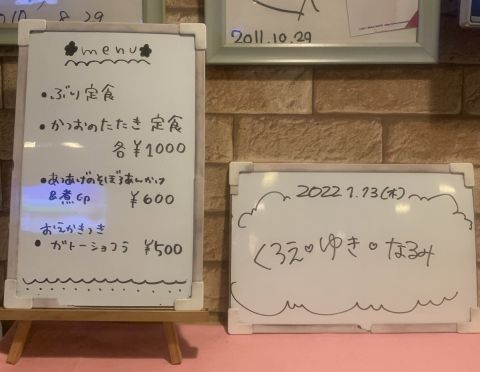 2010.8.29
2011.10.29
menu
・ぶり定食
・かつおのたたき 定食
各 ¥1000
・あつあげのそぼろあんかけ
&煮cp ¥600
おえかきつき
・ガトーショコラ ¥500
2022.1.13(木)
くろえ・ゆき・なるみ